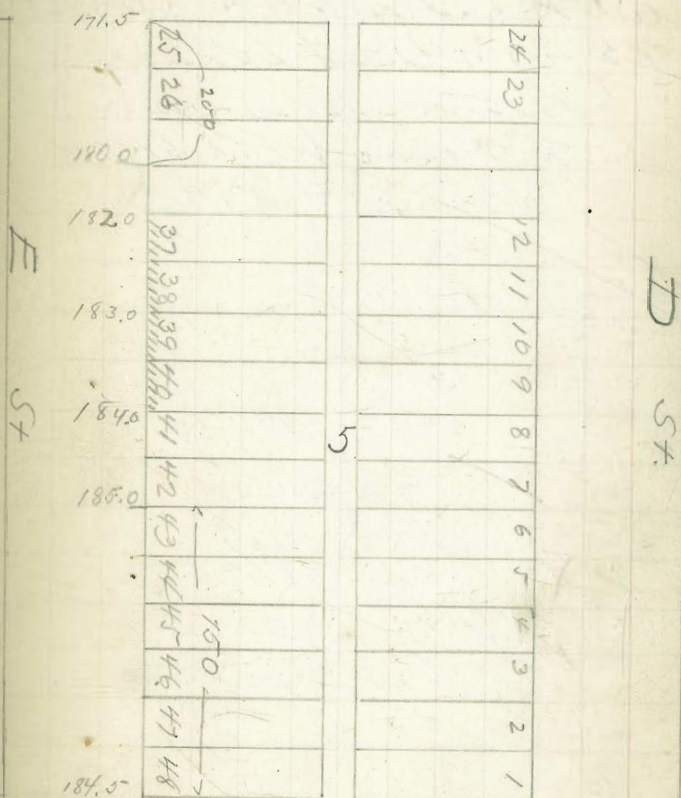 171.5
180.0
182.0
183.0
184.0
185.0
184.5
E St
25
26
200
37
38
39
40
41
42
43
44
45
46
47
48
150
5
24
23
12
11
10
9
8
7
6
5
4
3
2
1
D St.